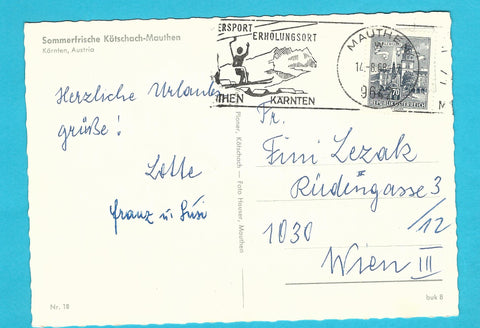 Sommerfrische Kötschach-Mauthen
Kärnten, Austria
ERSPORT
ERHOLUNGSORT
THEN KÄRNTEN
MAUTHEN
14.-8.68
REPUBLIK ÖSTERREICH
Herzliche Urlaubs
grüße!
Lotte
Franz u. Susi
Fr.
Fini Lezak
Rüdengasse 3
/12
1030
Wien III
Kötschach — Foto Hauser, Mauthen
Nr. 18
buk 8